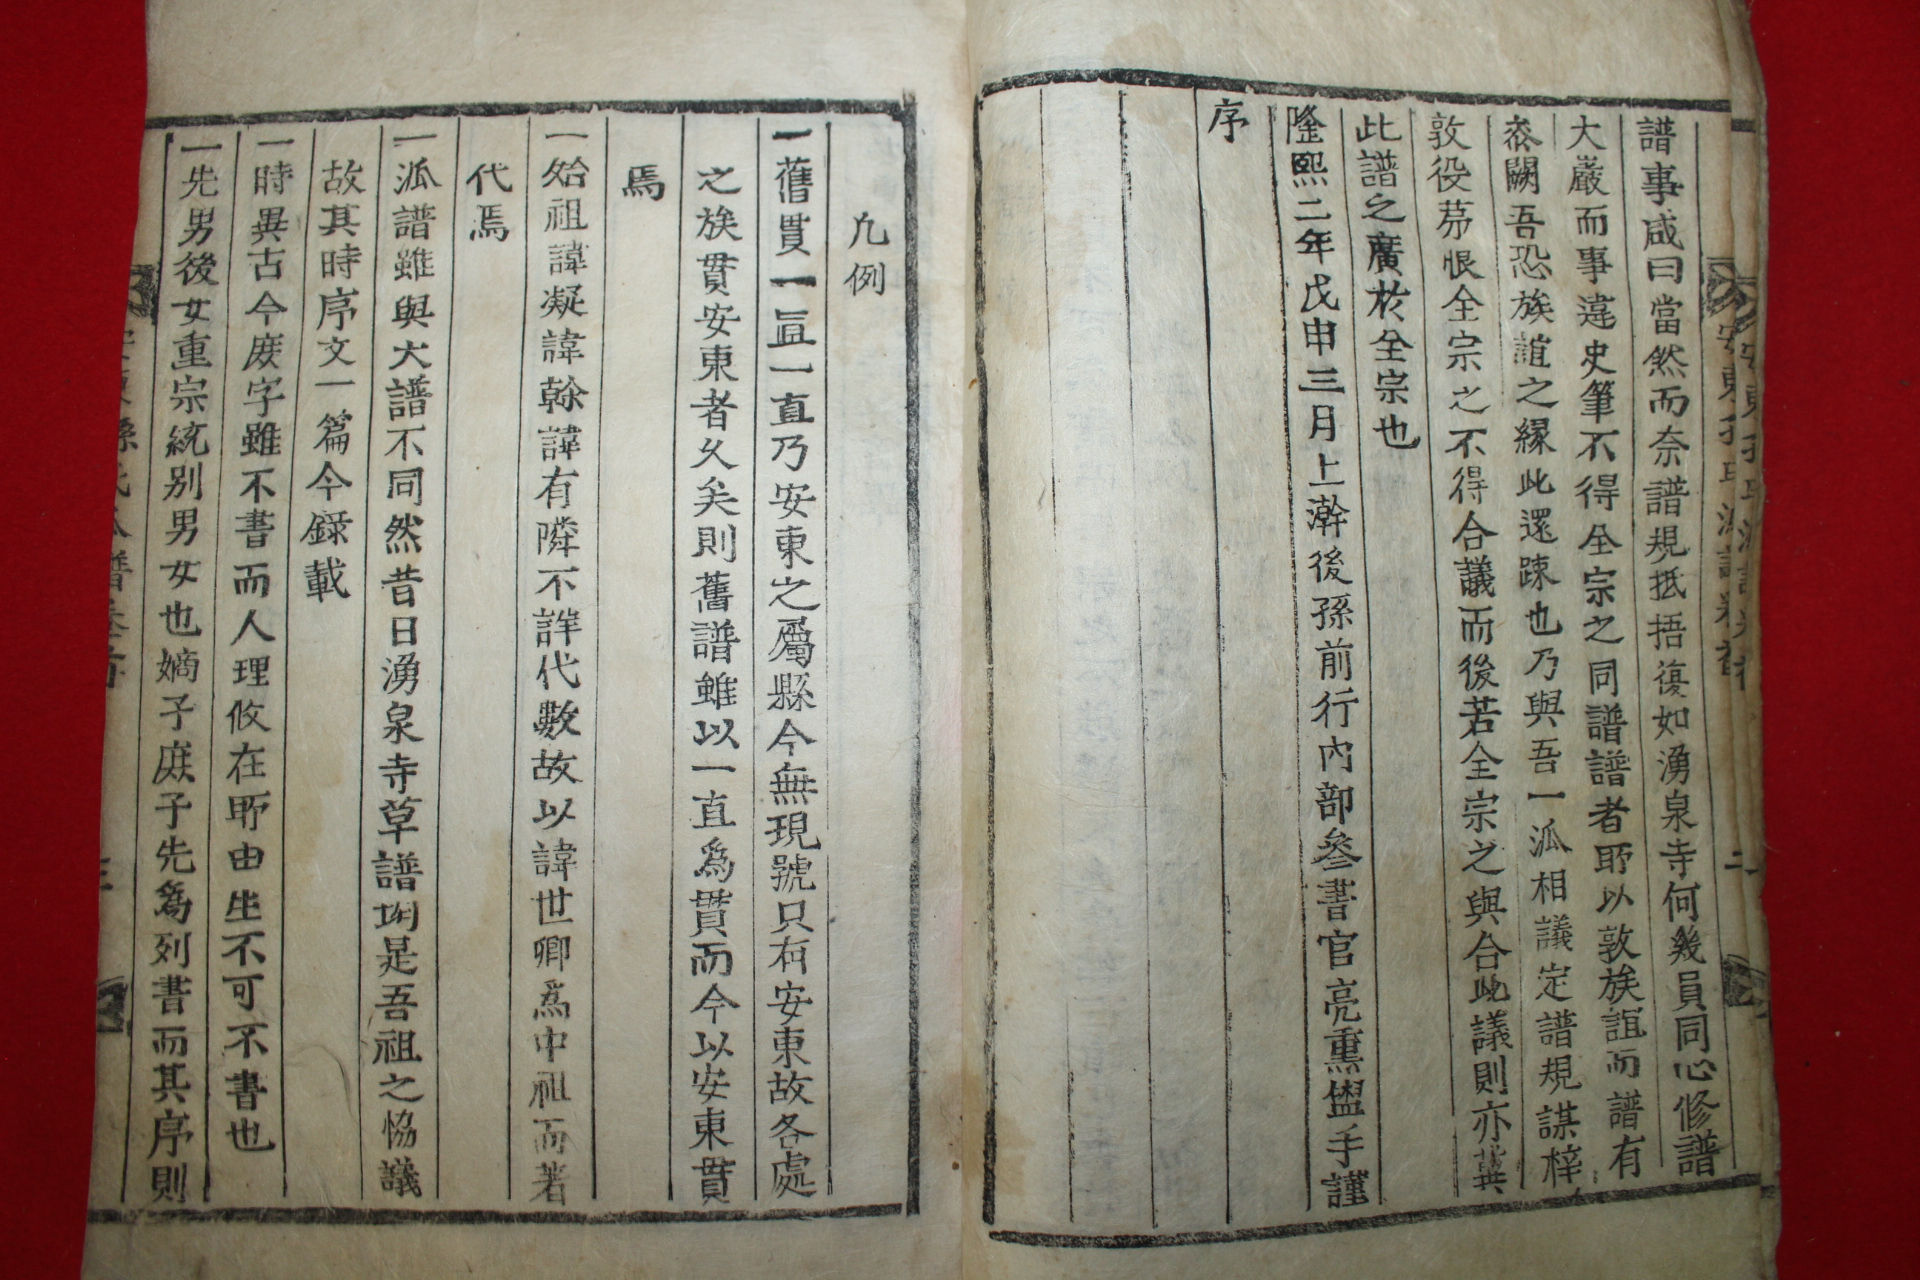 譜事咸曰當然而奈譜規抵捂復如湧泉寺何幾員同心修譜
大嚴而事違史筆不得全宗之同譜譜者所以敦族誼而譜有
忝闕吾恐族誼之緣此還踈也乃與吾一派相議定譜規謀梓
敦役苐恨全宗之不得合議而後若全宗之與合此議則亦冀
此譜之廣於全宗也
隆熙二年戊申三月上澣後孫前行內部參書官亮熏盥手謹
序
凡例
一舊貫一直一直乃安東之屬縣今無現號只有安東故各處
之族貫安東者久矣則舊譜雖以一直爲貫而今以安東貫
焉
一始祖諱凝諱榦諱有隣不詳代數故以諱世卿爲中祖而著
代焉
一派譜雖與大譜不同然昔日湧泉寺草譜卽是吾祖之恊議
故其時序文一篇今錄載
一時異古今庶字雖不書而人理攸在所由生不可不書也
一先男後女重宗統別男女也嫡子庶子先爲列書而其序則